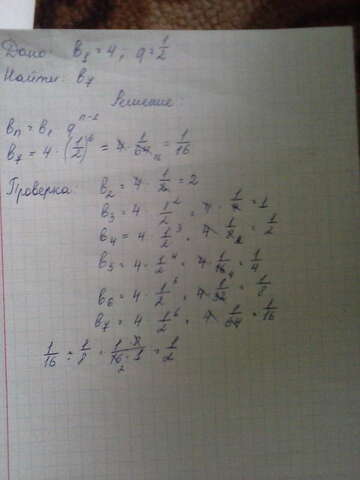 Дано: в₁ = 4, q = 1/2
Найти: в₇
Решение:
вₙ = в₁ qⁿ⁻¹
в₇ = 4 · (1/2)⁶ = 4 · 1/64 ₁₆ = 1/16
Проверка: в₂ = 4 · 1/2 = 2
в₃ = 4 · 1/2² = 4 · 1/4 = 1
в₄ = 4 · 1/2³ = 4 · 1/8 ₂ = 1/2
в₅ = 4 · 1/2⁴ = 4 · 1/16 ₄ = 1/4
в₆ = 4 · 1/2⁵ = 4 · 1/32 = 1/8
в₇ = 4 · 1/2⁶ = 4 · 1/64 = 1/16
1/16 : 1/8 = 1 · 8/16 ₂ · 1 = 1/2